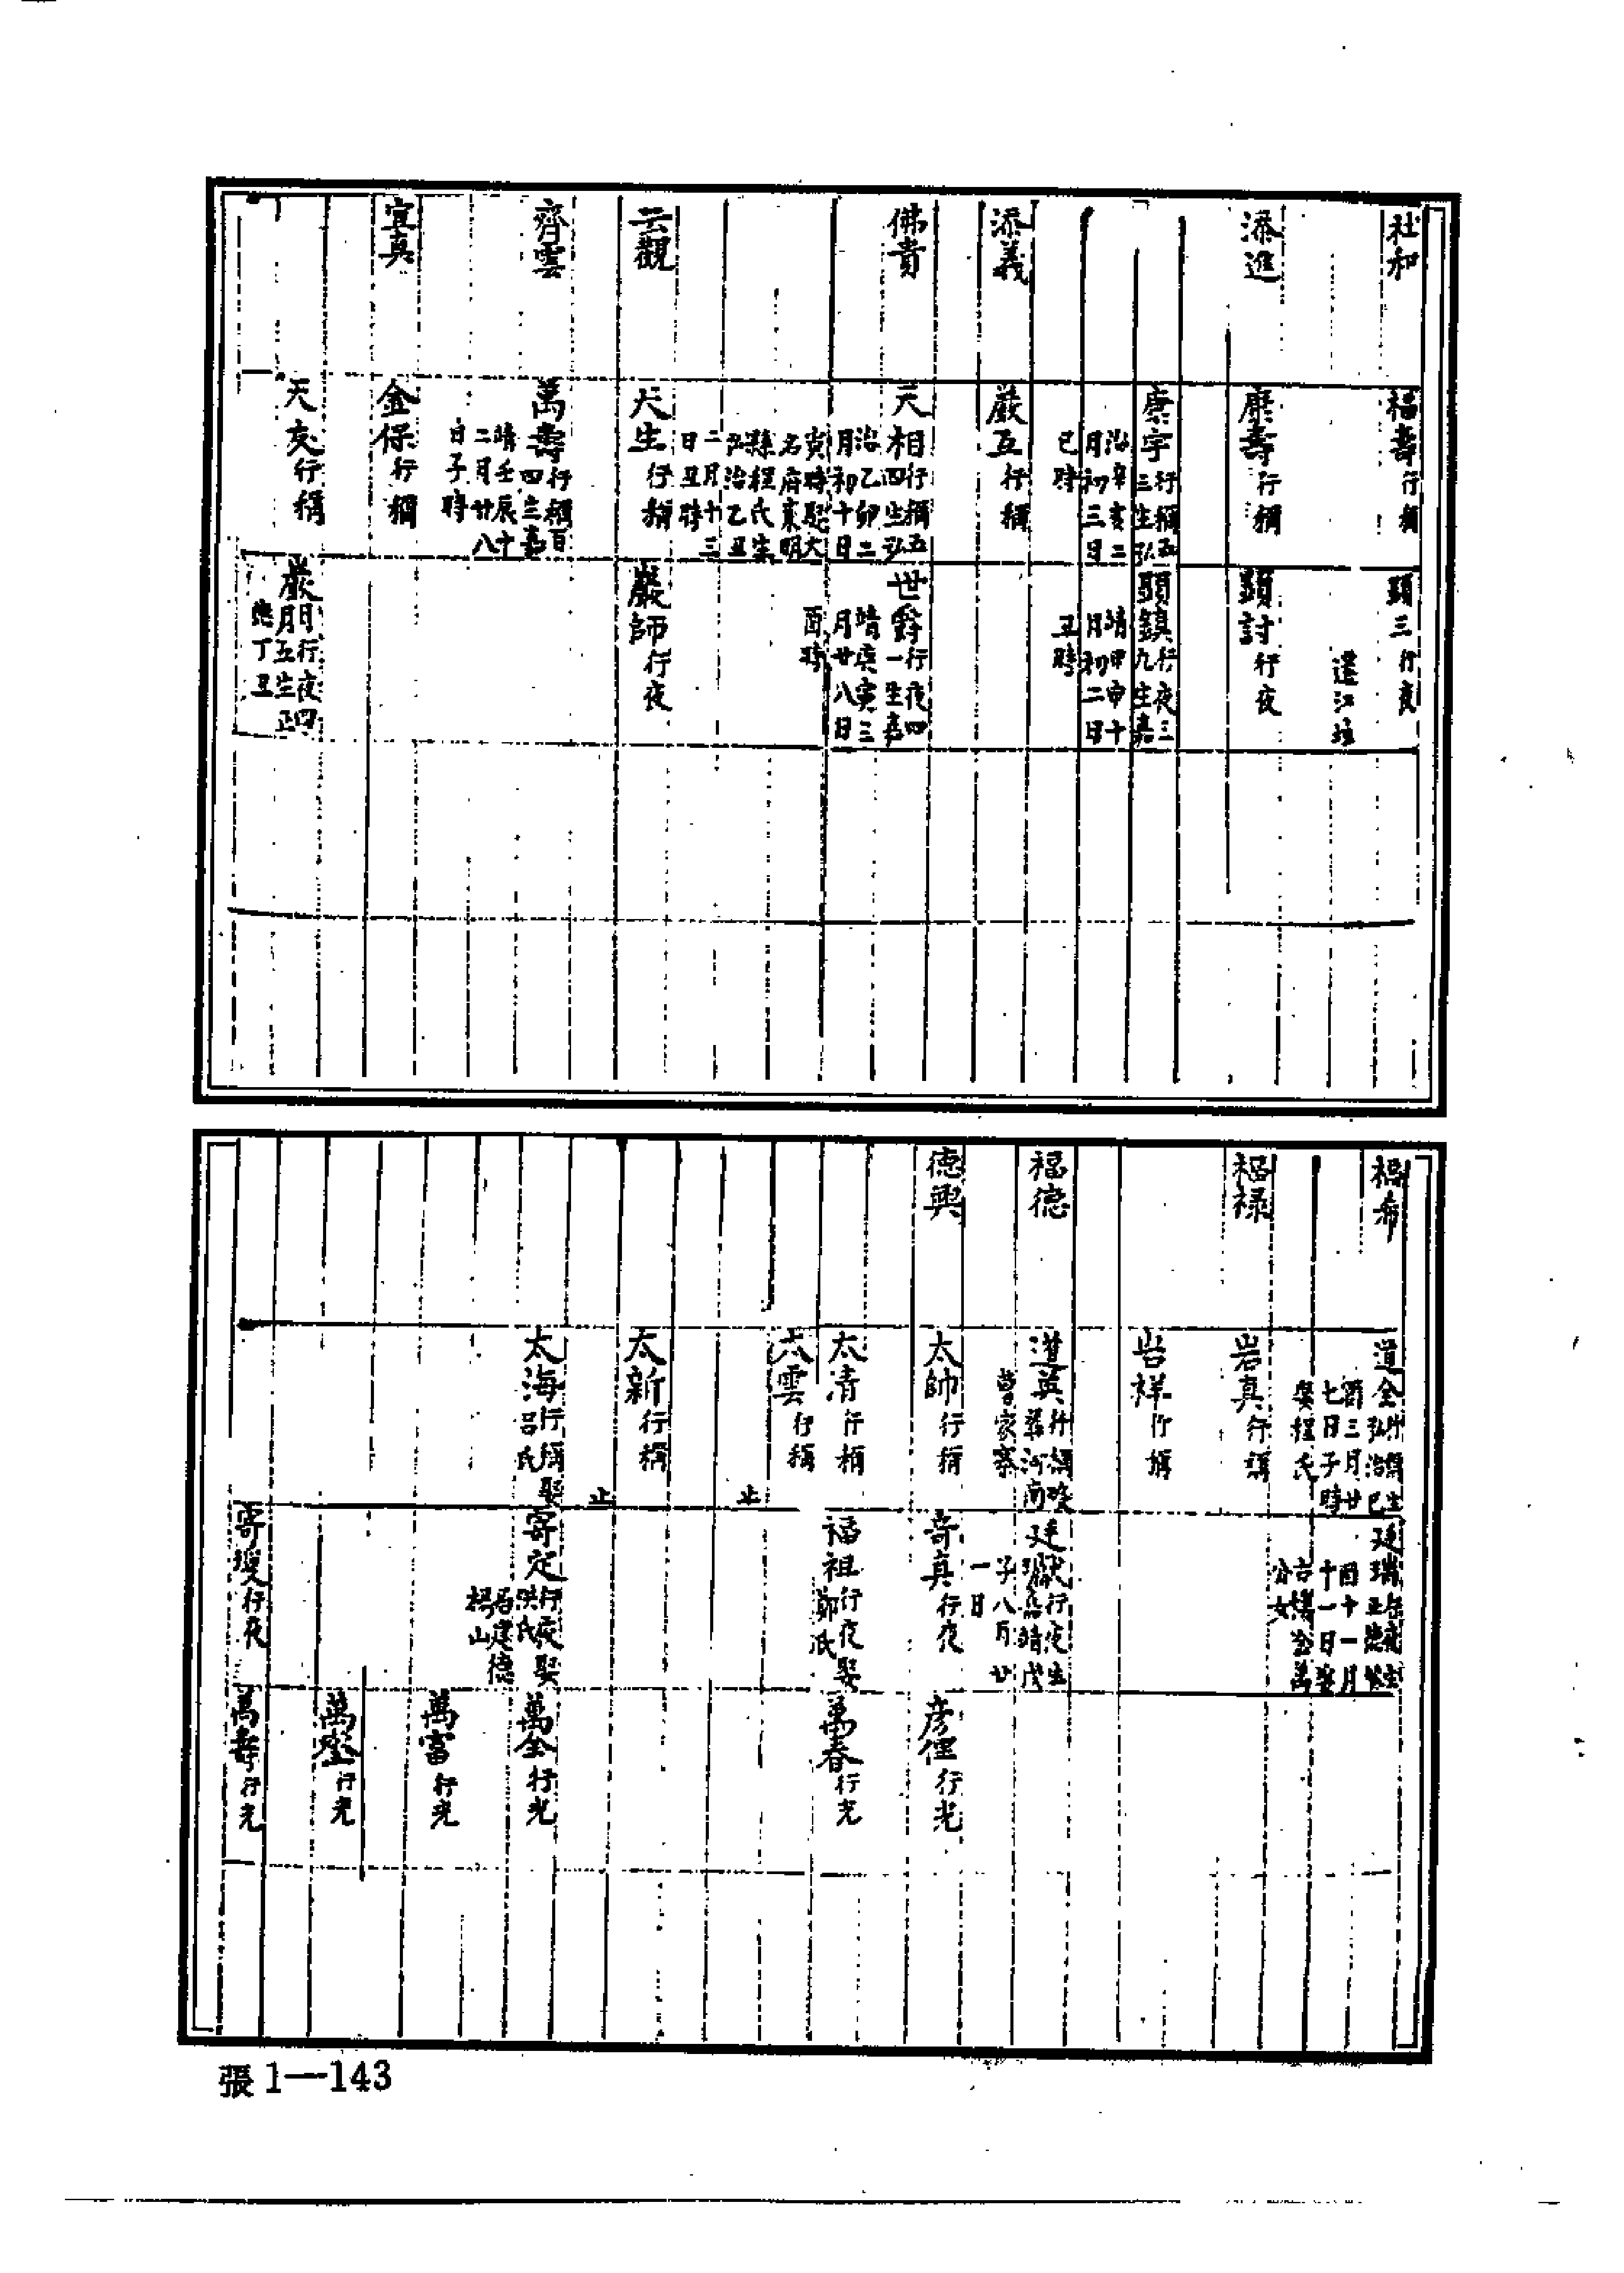 社和
福壽行稱
顕三行夜
遷江垓
添進
康壽行稱
顕討行夜
康宇行稱五
三生弘
治辛亥二
月初三日
巳時
顕鎮行夜三
九生嘉
靖甲申十
月初二日
丑時
添義
嚴互行稱
佛貴
天相行稱五
四生弘
治乙卯二
月初十日
寅時娶大
名府東明
縣程氏生
弘治乙丑
二月十三
日丑時
世爵行夜四
一生嘉
靖庚寅三
月廿八日
酉時
云觀
天生行稱
嚴師行夜
齊雲
萬壽行稱百
四生嘉
靖壬辰十
二月廿八
日子時
宜真
金保行稱
天友行稱
嚴月行夜四
五生正
德丁丑
福希
道全行稱生
弘治己
酉三月廿
七日子時
娶程氏
廷瑞行夜生
正德癸
酉十一月
十一日娶
福祿
岩真行稱
岩祥行稱
福德
道英行稱
河南
曹家寨
廷猷行夜生
嘉靖戊
子八月廿
一日
德興
太帥行稱
奇真行夜
彦俚行光
太清行稱
福祖行夜娶
鄭氏
萬春行光
太雲行稱
止
太新行稱
止
太海行稱娶
呂氏
寄定行夜娶
洪氏
居建德
楊山
萬全行光
萬富行光
萬行光
寄行夜
萬壽行光
張1—143